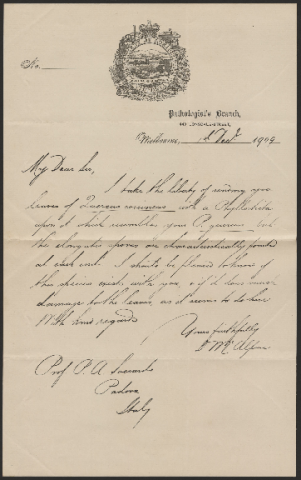 No.
Pathologist's Branch,
Melbourne, 1st Decr. 1909
My Dear Sir,
I take the liberty of sending you
leaves of Quercus with a Phyllosticta
upon it which resembles your P. quercus but
the elongated spores are characteristically pointed
at each end. I should be pleased to know if
this species exists with you & if it does much
damage to the leaves as it seems to do here
With kind regards
Yours faithfully
D McAlpine
Prof P. A. Saccardo
Padova
Italy